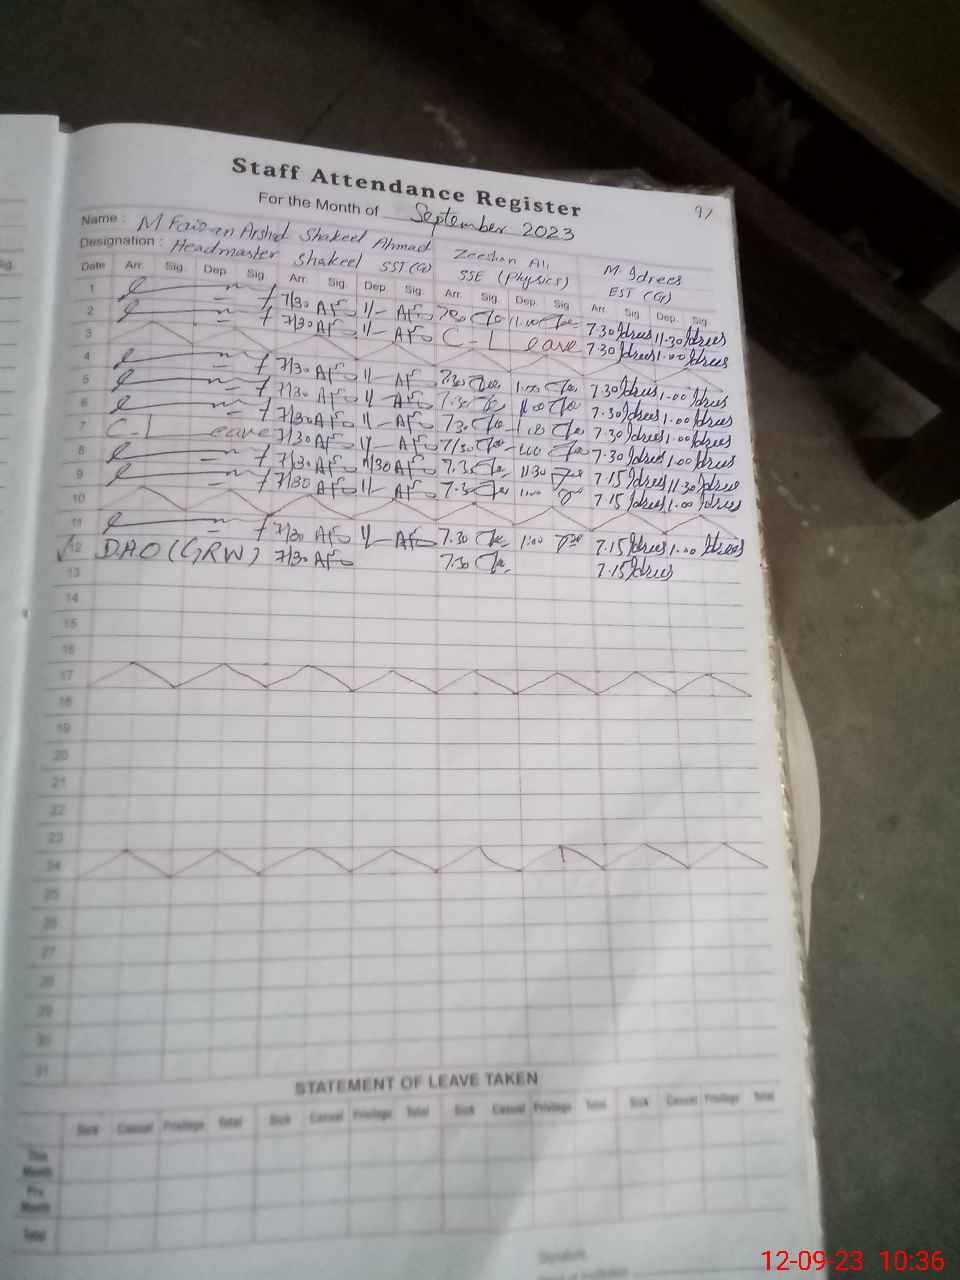 Staff Attendance Register
For the Month of September 2023
9/
Name : M Faizan Arshid Shakeel Ahmad Zeeshan Ali M. Idrees
Designation : Headmaster Shakeel SST(G) SSE (Physics) EST (G)
Date Arr. Sig. Dep. Sig. Arr. Sig. Dep. Sig. Arr. Sig. Dep. Sig. Arr Sig Dep. Sig
1 7/30 11.00 7.30 Idrees 11.30 Idrees
2 7/30 C-Leave 7.30 Idrees 1.00 Idrees
3
4 7/30 7.30 1.00 7.30 Idrees 1.00 Idrees
5 7/30 7.30 1.00 7.30 Idrees 1.00 Idrees
6 7/30 7.30 1.00 7.30 Idrees 1.00 Idrees
7 C.Leave 7/30 7/30 1.00 7.30 Idrees 1.00 Idrees
8 7/30 11/30 7.30 11.30 7.15 Idrees 11.30 Idrees
9 7/30 7.30 1.00 7.15 Idrees 1.00 Idrees
10
11 7/30 7.30 1:00 7.15 Idrees 1.00 Idrees
12 D.A.O (GRW) 7/30 7.30 7.15 Idrees
13
14
15
16
17
18
19
20
21
22
23
24
25
26
27
28
29
30
31
STATEMENT OF LEAVE TAKEN
Sick Casual Privilege Total Sick Casual Privilege Total Sick Casual Privilege Total Sick Casual Privilege Total
This Month
Pre Month
Total
Signature
12-09-23 10:36